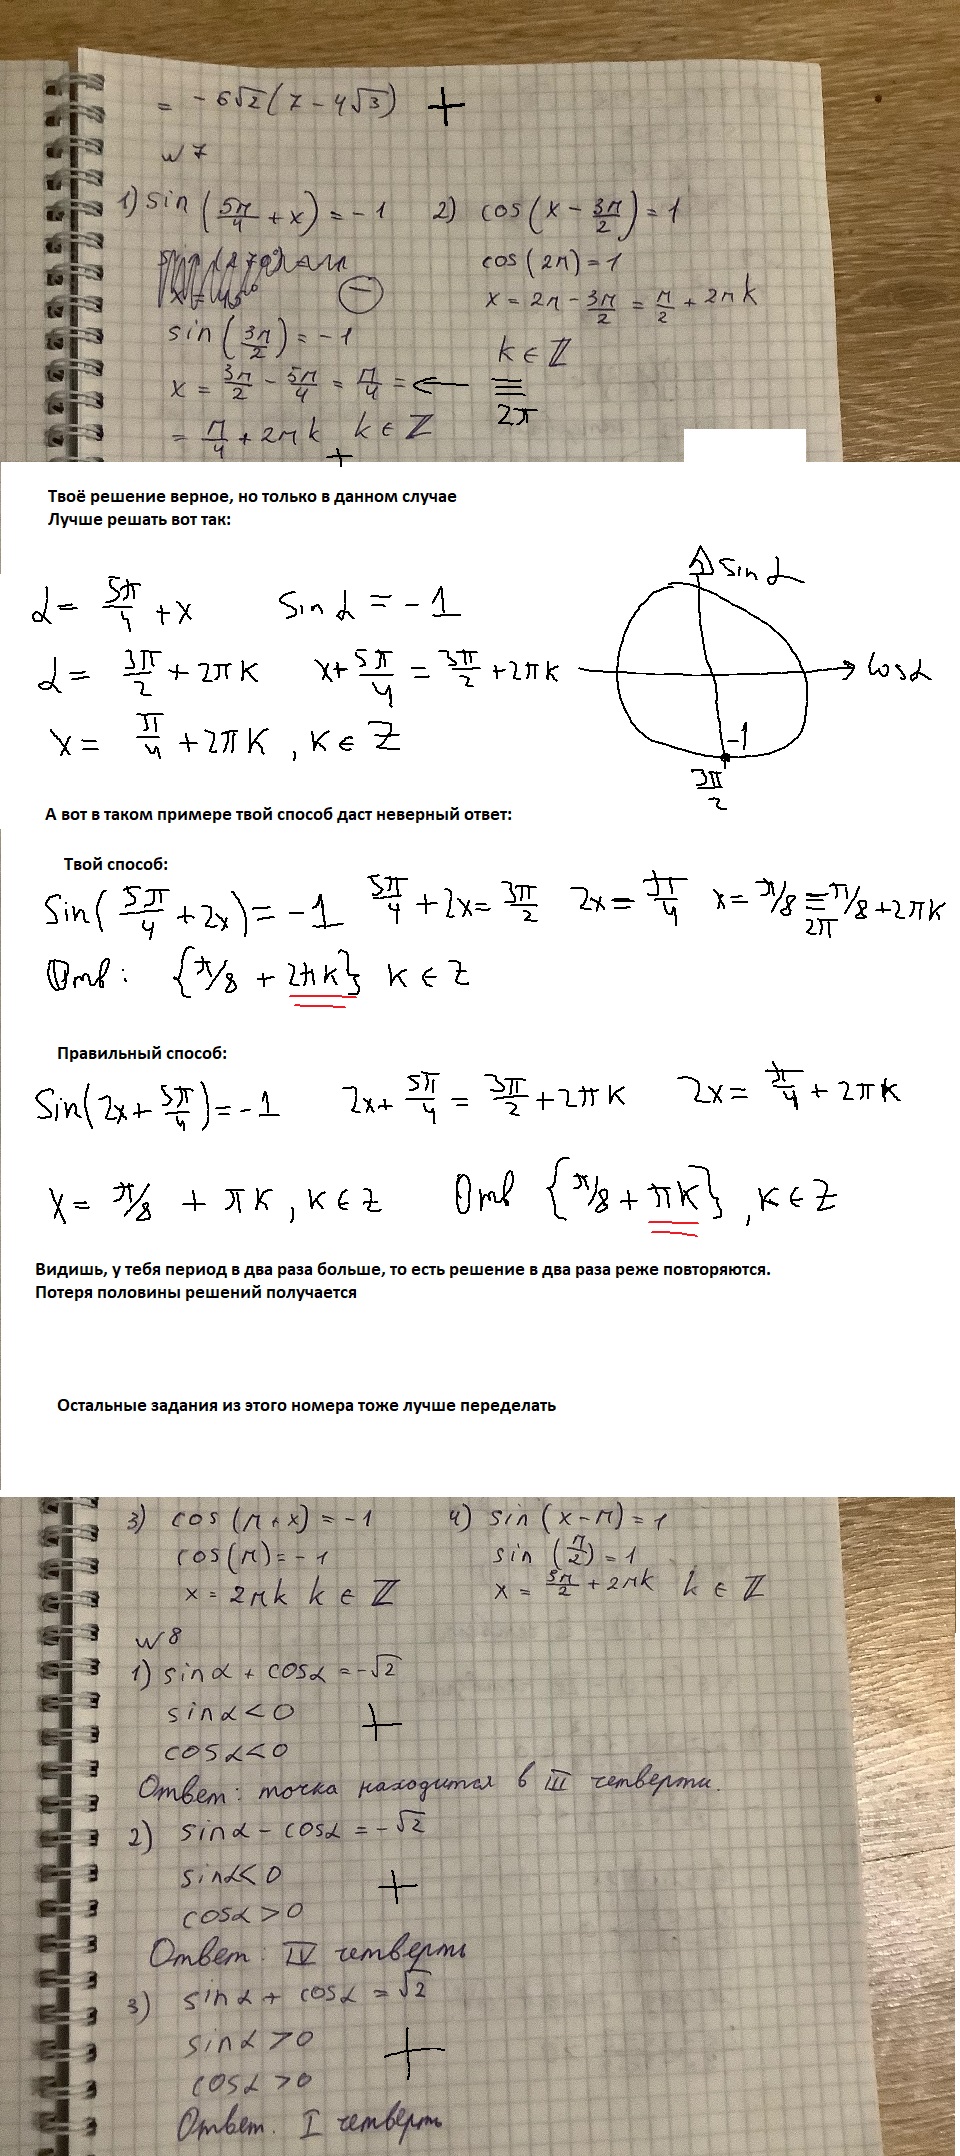 = -6√2(7 - 4√3) +
№7
1) sin(5π/4 + x) = -1 2) cos(x - 3π/2) = 1
cos(2π) = 1
x = 45° ⊖ x = 2π - 3π/2 = π/2 + 2πk
sin(3π/2) = -1 k ∈ ℤ
x = 3π/2 - 5π/4 = π/4 = ← ≡ 2π
= π/4 + 2πk k ∈ ℤ
+
Твоё решение верное, но только в данном случае
Лучше решать вот так:
α = 5π/4 + x sin α = -1 sin α
α = 3π/2 + 2πk x + 5π/4 = 3π/2 + 2πk cos α
x = π/4 + 2πk, k ∈ Z -1
3π/2
А вот в таком примере твой способ даст неверный ответ:
Твой способ:
Sin(5π/4 + 2x) = -1 5π/4 + 2x = 3π/2 2x = π/4 x = π/8 ≡ 2π π/8 + 2πk
Отв: {π/8 + 2πk} k ∈ Z
Правильный способ:
Sin(2x + 5π/4) = -1 2x + 5π/4 = 3π/2 + 2πk 2x = π/4 + 2πk
x = π/8 + πk, k ∈ Z Отв {π/8 + πk}, k ∈ Z
Видишь, у тебя период в два раза больше, то есть решение в два раза реже повторяются.
Потеря половины решений получается
Остальные задания из этого номера тоже лучше переделать
3) cos(π + x) = -1 4) sin(x - π) = 1
cos(π) = -1 sin(π/2) = 1
x = 2πk k ∈ ℤ x = 3π/2 + 2πk k ∈ ℤ
№8
1) sinα + cosα = -√2
sinα < 0 +
cosα < 0
Ответ: точка находится в III четверти.
2) sinα - cosα = -√2
sinα < 0 +
cosα > 0
Ответ: IV четверть
3) sinα + cosα = √2
sinα > 0 +
cosα > 0
Ответ. I четверть